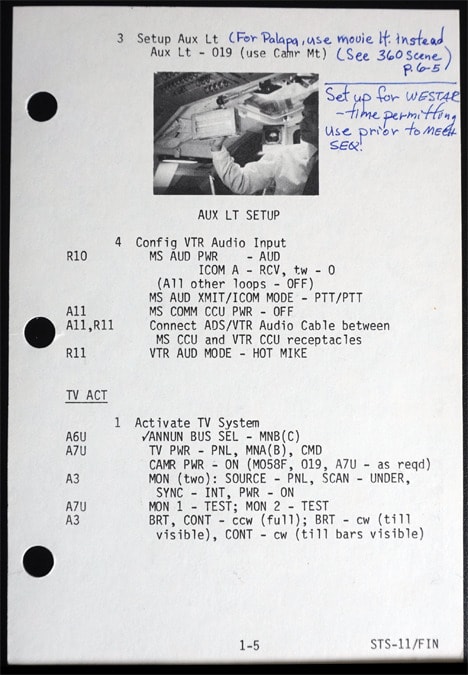 3 Setup Aux Lt (For Palapa, use movie lt. instead
Aux Lt - O19 (use Camr Mt) (See 360 Scene)
p. 6-5
Set up for WESTAR
- time permitting
Use prior to MECH
SEQ!
AUX LT SETUP
4 Config VTR Audio Input
R10 MS AUD PWR - AUD
ICOM A - RCV, tw - 0
(All other loops - OFF)
MS AUD XMIT/ICOM MODE - PTT/PTT
A11 MS COMM CCU PWR - OFF
A11,R11 Connect ADS/VTR Audio Cable between
MS CCU and VTR CCU receptacles
R11 VTR AUD MODE - HOT MIKE
TV ACT
1 Activate TV System
A6U ✓ANNUN BUS SEL - MNB(C)
A7U TV PWR - PNL, MNA(B), CMD
CAMR PWR - ON (MO58F, O19, A7U - as reqd)
A3 MON (two): SOURCE - PNL, SCAN - UNDER,
SYNC - INT, PWR - ON
A7U MON 1 - TEST; MON 2 - TEST
A3 BRT, CONT - ccw (full); BRT - cw (till
visible), CONT - cw (till bars visible)
1-5 STS-11/FIN